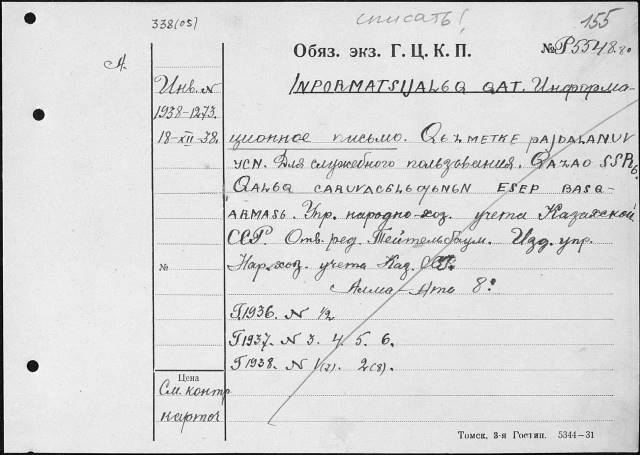 338(05)
списать!
155
Обяз. экз. Г. Ц. К. П.
№ Р5548.
А.
Инв. N
1938-1273.
18-XII-38.
INPORMATSIJALЬQ QAT. Информа-
ционное письмо. QЬZMETKE PAJDALANUV
YCN. Для служебного пользования. QAZAQ SSRЬ.
QALЬQ CARUVACЬLЬƢЬNЬN ESEP BASQ-
ARMASЬ. Упр. народно-хоз. учета Казахской
ССР. Отв. ред. Тейтельбаум. Изд. упр.
№
Нар. хоз. учета Каз. ССР.
Алма-Ата 8°
Г.1936. N 1/2
Г1937. N 3. 4. 5. 6.
Г1938. N 1(7). 2(8).
Цена
См. контр
карточ
Томск, 3-я Гостип. 5344—31